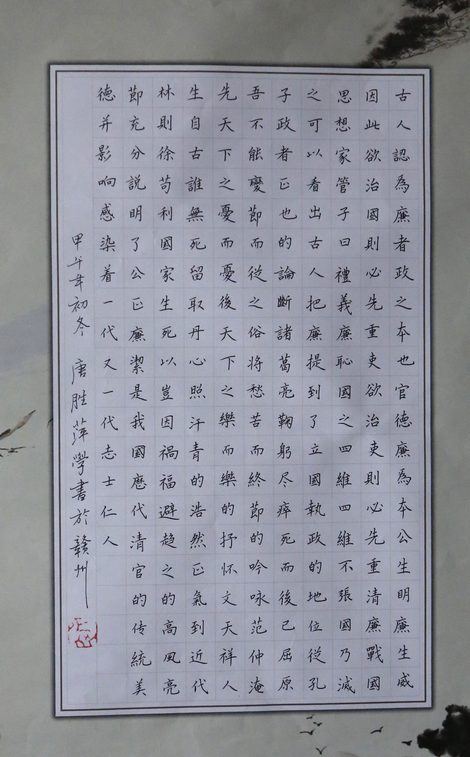 古人認為廉者政之本也官德廉為本公生明廉生威
因此欲治國則必先重吏欲治吏則必先重清廉戰國
思想家管子曰禮義廉恥國之四維四維不張國乃滅
之可以看出古人把廉提到了立國執政的地位從孔
子政者正也的論斷諸葛亮鞠躬尽瘁死而後已屈原
吾不能變節而從之俗將愁苦而終節的吟咏范仲淹
先天下之憂而憂後天下之樂而樂的抒怀文天祥人
生自古誰無死留取丹心照汗青的浩然正氣到近代
林則徐苟利國家生死以豈因禍福避趨之的高風亮
節充分說明了公正廉潔是我國歷代清官的传統美
德并影响感染着一代又一代志士仁人
甲午年初冬 唐胜萍學書於赣州